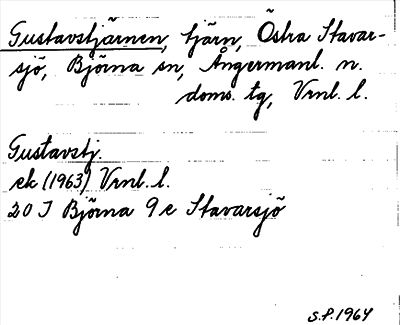 Gustavstjärnen, tjärn, Östra Stavar-
sjö, Björna sn, Ångermanl. n.
doms. tg, Vrnl. l.
Gustavstj.
ek (1963) Vrnl. l.
20 J Björna 9 e Stavarsjö
S.P. 1964